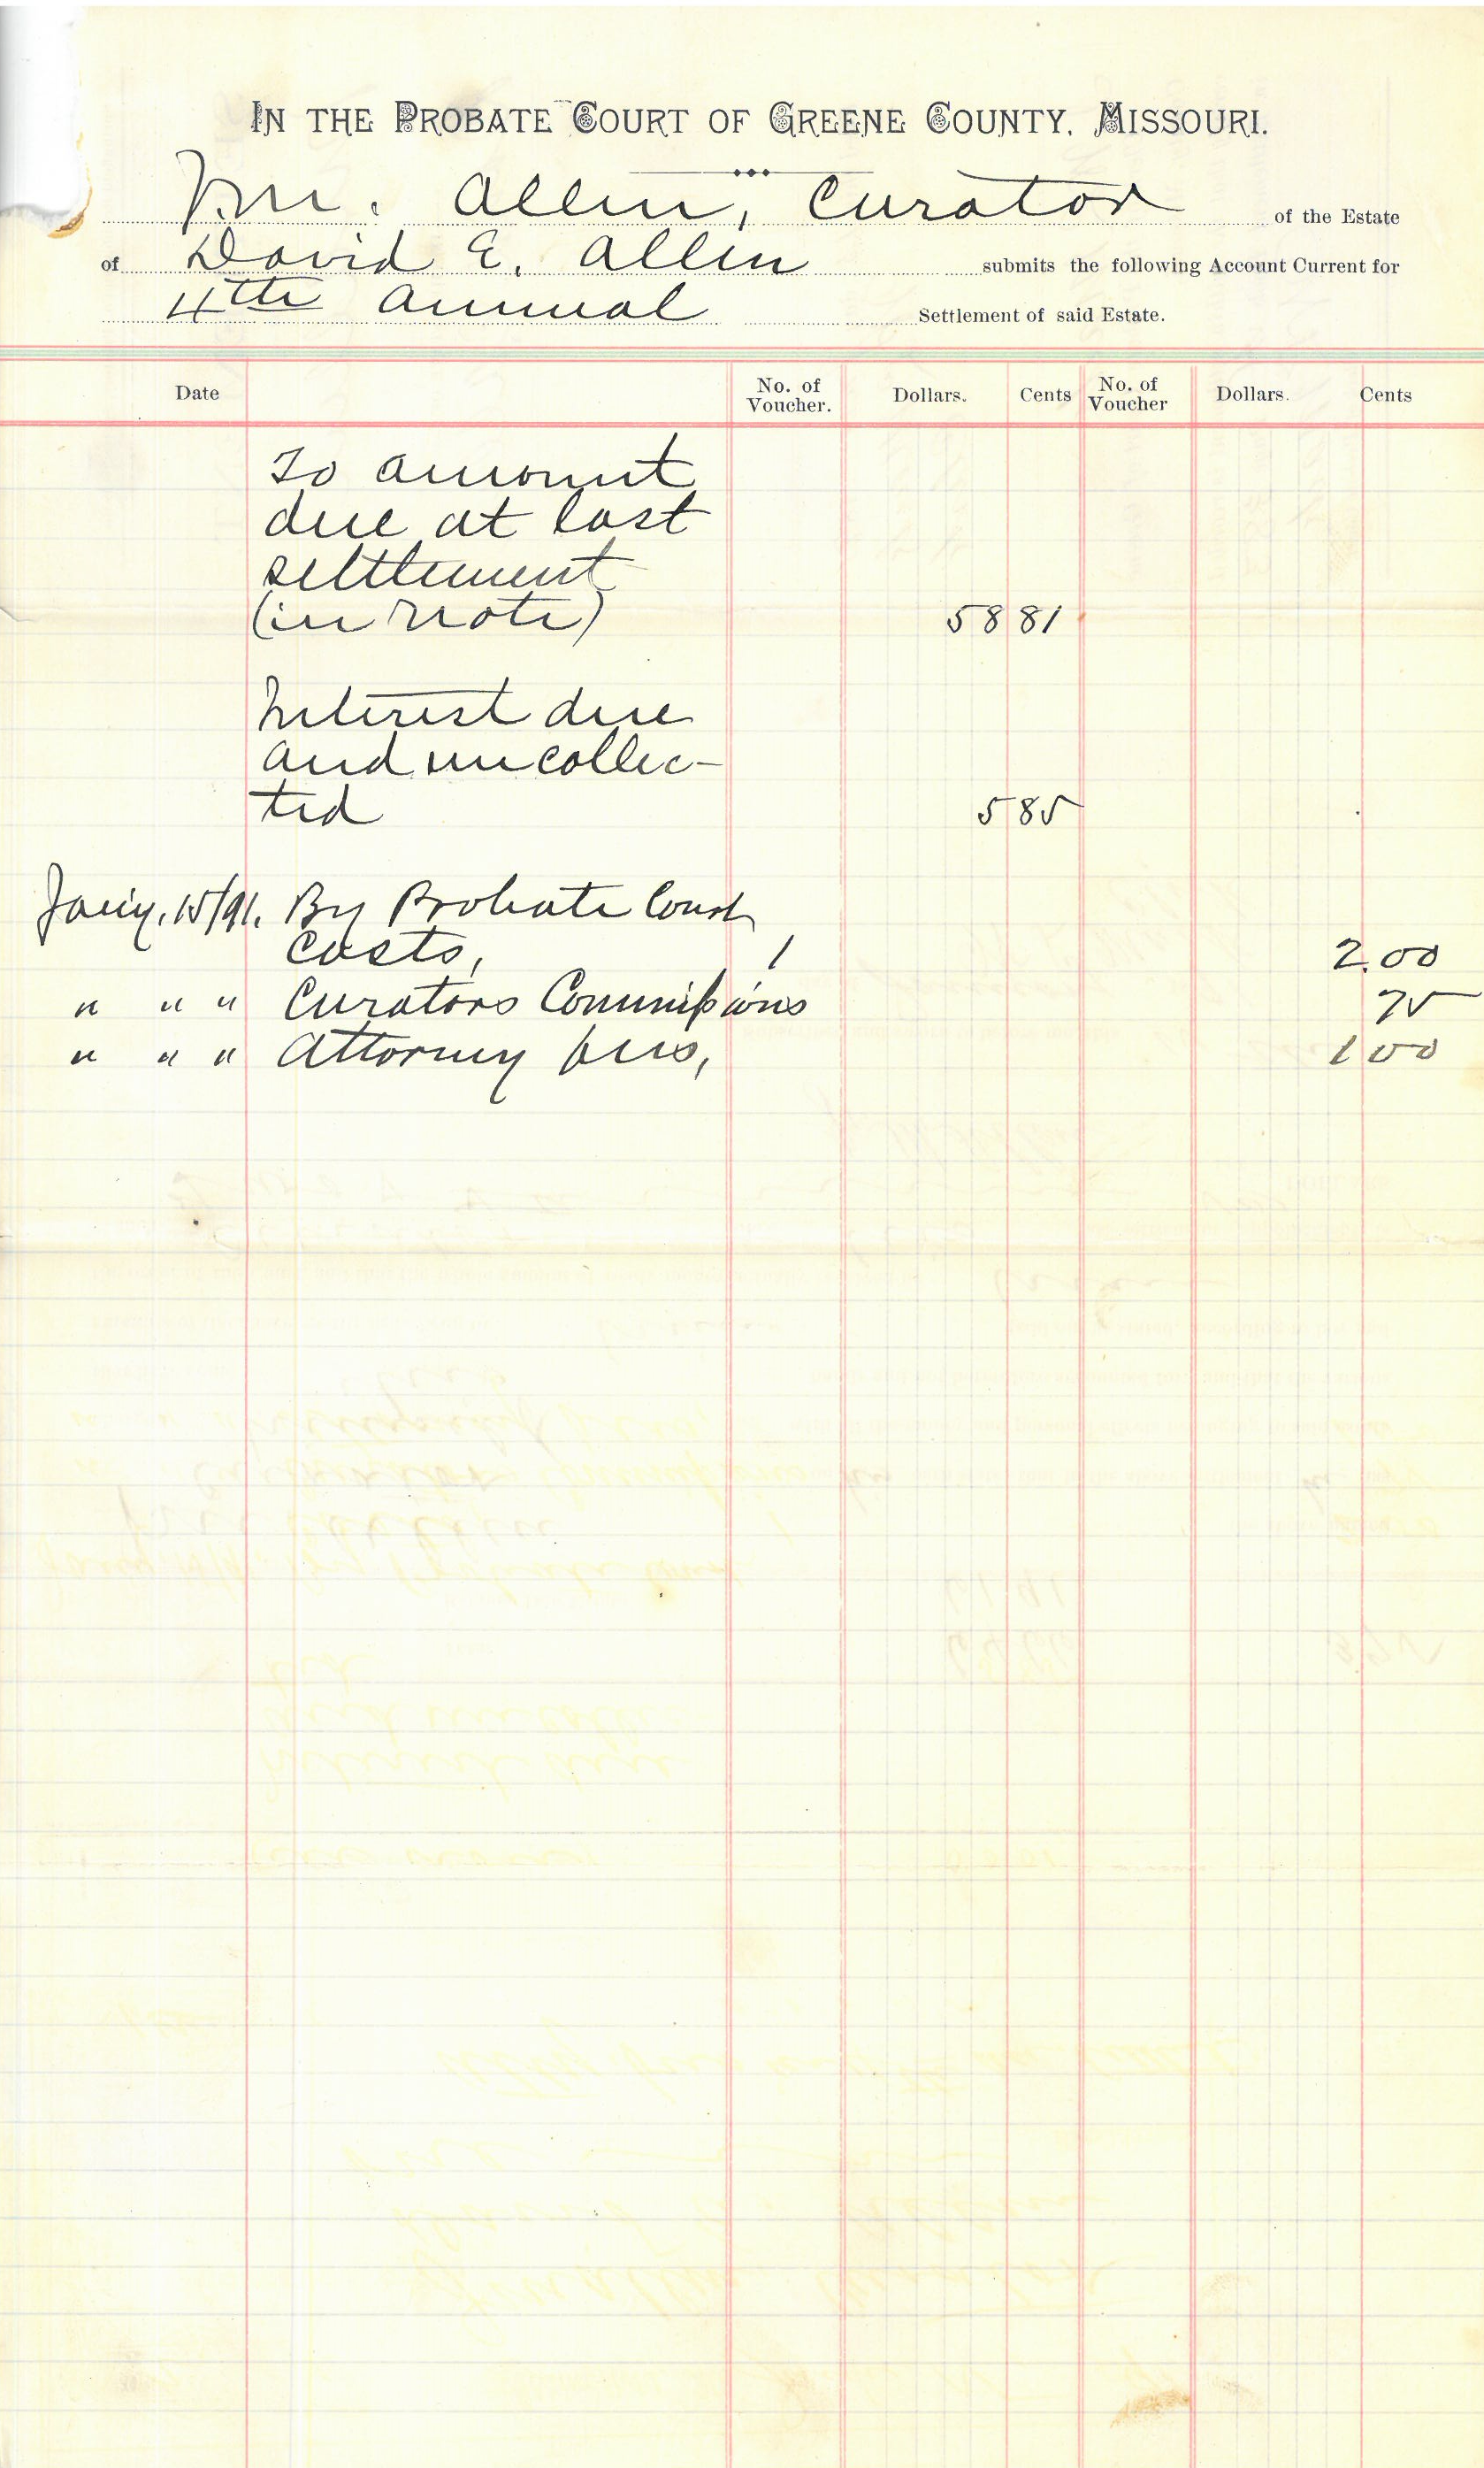 IN THE PROBATE COURT OF GREENE COUNTY, MISSOURI.
J.M. Allen, Curator of the Estate
of David E. Allen submits the following Account Current for
4th Annual Settlement of said Estate.
Date No. of Voucher. Dollars. Cents No. of Voucher Dollars. Cents
To amount
due at last
settlement
(in note) 58 81
Interest due
and uncollec-
ted 5 85
Jany. 15/91. By Probate Court
Costs, 1 2.00
" " " Curators Commissions 75
" " " Attorney fees, 1 00